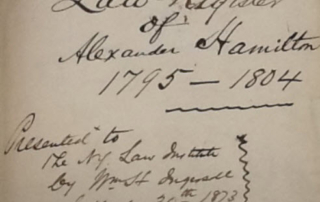 Law Register
of
Alexander Hamilton
1795 — 1804
Presented to
The NY Law Institute
by Wm H Ingersoll
20th 1873